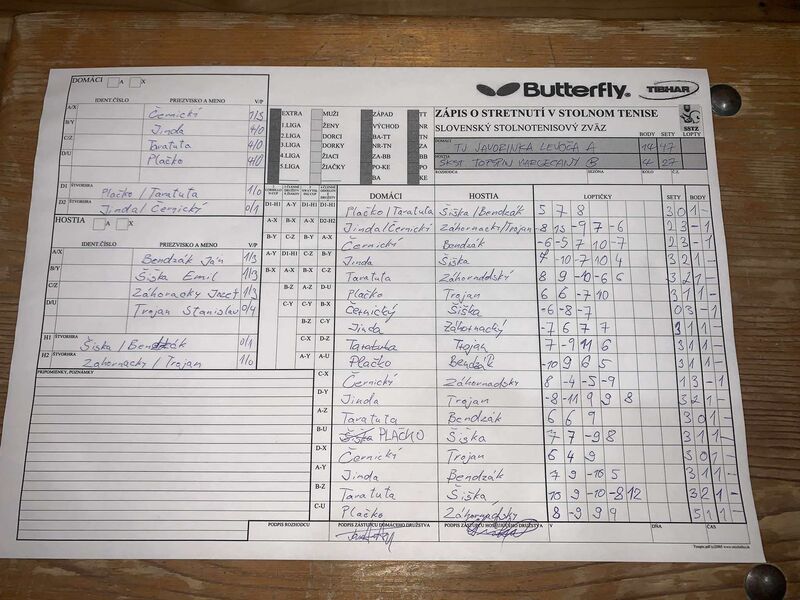 Butterfly. TIBHAR
DOMÁCI A X
IDENT.ČÍSLO PRIEZVISKO A MENO V/P
A/X Černický 1/3
B/Y Jinda 4/0
C/Z Taratuta 4/0
D/U Plačko 4/0
D1 ŠTVORHRA Plačko/Taratuta 1/0
D2 Jinda/Černický 0/1
HOSTIA A X
IDENT.ČÍSLO PRIEZVISKO A MENO V/P
A/X Bendzák Ján 1/3
B/Y Šiška Emil 1/3
C/Z Záhornacky Jozef 1/3
D/U Trojan Stanislav 0/4
H1 ŠTVORHRA Šiška/Bendzák 0/1
H2 ŠTVORHRA Zahornacky/Trojan 1/0
PRIPOMIENKY, POZNÁMKY
EXTRA MUŽI ZÁPAD TT
1.LIGA ŽENY VÝCHOD NR
2.LIGA DORCI BA-TT TN
3.LIGA DORKY NR-TN ZA
4.LIGA ŽIACI ZA-BB BB
5.LIGA ŽIAČKY PO-KE PO
BA KE
ZÁPIS O STRETNUTÍ V STOLNOM TENISE
SLOVENSKÝ STOLNOTENISOVÝ ZVÄZ
SSTZ
BODY SETY LOPTY
DOMÁCI TJ JAVORINKA LEVOČA A 14 47
HOSTIA 4 27
ROZHODCA SEZÓNA KOLO Č.Z.
DOMÁCI HOSTIA LOPTIČKY SETY BODY
D1-H1 A-Y D1-H1 D1-H1 Plačko/Taratuta Šiška/Bendzák 5 7 8 3 0 1 -
A-X B-X A-X D2-H2 Jinda/Černický Záhornacky/Trojan -8 13 -9 7 -6 2 3 - 1
B-Y C-Z B-Y A-X Černický Bendzák -6 -5 7 10 -7 2 3 - 1
A-Y D1-H1 C-Z B-Y Jinda Šiška 7 -10 -7 10 4 3 2 1 -
B-X A-X B-X C-Z Taratuta Záhorndolský 8 9 -10 -6 6 3 2 1 -
B-Z A-Z D-U Plačko Trojan 6 6 -7 10 3 1 1 -
C-Y C-Y B-X Černický Šiška -6 -8 -7 0 3 - 1
B-Z C-Y Jinda Záhornacký -7 6 7 7 3 1 1 -
C-X D-Z Taratuta Trojan 7 -9 11 6 3 1 1 -
A-Y A-U Plačko Bendzák -10 9 6 5 3 1 1 -
C-X Černický Záhornadský 8 -4 -5 -9 1 3 - 1
D-Y Jinda Trojan -8 -11 9 9 8 3 2 1 -
A-Z Taratuta Bendzák 6 6 9 3 0 1 -
B-U Šiška PLAČKO Šiška 7 7 -9 8 3 1 1 -
D-X Černický Trojan 6 4 9 3 0 1 -
A-Y Jinda Bendzák 7 9 -10 5 3 1 1 -
B-Z Taratuta Šiška 10 9 -10 -8 12 3 2 1 -
C-U Plačko Záhornadský 8 -9 9 9 3 1 1 -
PODPIS ROZHODCU PODPIS ZÁSTUPCU DOMÁCEHO DRUŽSTVA PODPIS ZÁSTUPCU HOSŤUJÚCEHO DRUŽSTVA V DŇA ČAS